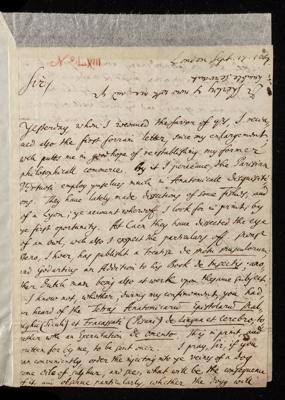 No LVIII
London Sept. 17. 1667.
Sir,
Yesterday, when I received the favour of yrs, I receiv-
ed also the first forrain letter, since my enlargement,
wch putts me in good hope of re-establishing my former
philosophicall commerce. By it I perceive, the Parisian
Virtuosi employ ymselves much in Anatomicall disquisiti-
ons. They have lately made dissections of some fishes, and
of a Lyon; ye account whereof I look for in print, by
ye first oportunity. At Caen they have dissected the eye
of an owl, wch also I expect the particulars off from
I hear, has publish a treatise de
and Godartius an Addition to his Book de Insectis; ano-
ther Dutch man being also at work upon the same subject.
I know not, whether, during my confinement, you had
heard of the Tetras Anatomicarum Epistolarum Mal-
pighii et Fracassati de lingua et cerebro; to
which is an Exercitation de Omento. This in print, and
written for by me, to be sent over. I pray, Sir, if you
can conveniently, order the injecting into ye veines of a Dog
some oile of sulphur, and see, what will be the consequence
of it, and observe particularly, whether the Dogg will